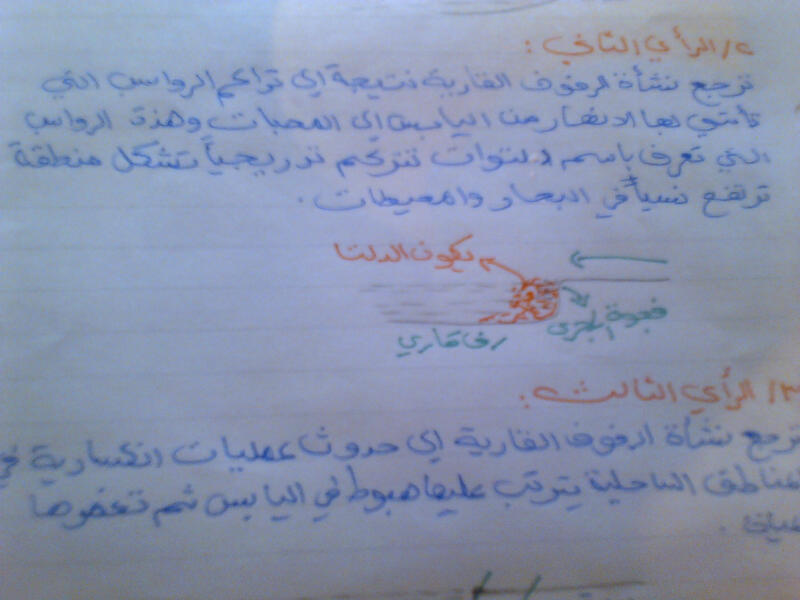 ٢/ الرأي الثاني :
ترجع نشأة الرفوف القارية نتيجة إلى تراكم الرواسب التي
تأتي بها الانهار من اليابس إلى المصبات وهذة الرواسب
التي تعرف باسم دلتوات تتركم تدريجياً تشكل منطقة
ترتفع نسياً في البحار والمحيطات .
يكون الدلتا
فجوة المجرى
رف قاري
٣/ الرأي الثالث :
ترجع نشأة الرفوف القارية إلى حدوث عمليات انكسارية في
المناطق الساحلية يترتب عليها هبوط في اليابس ثم تغمرها
المياه .